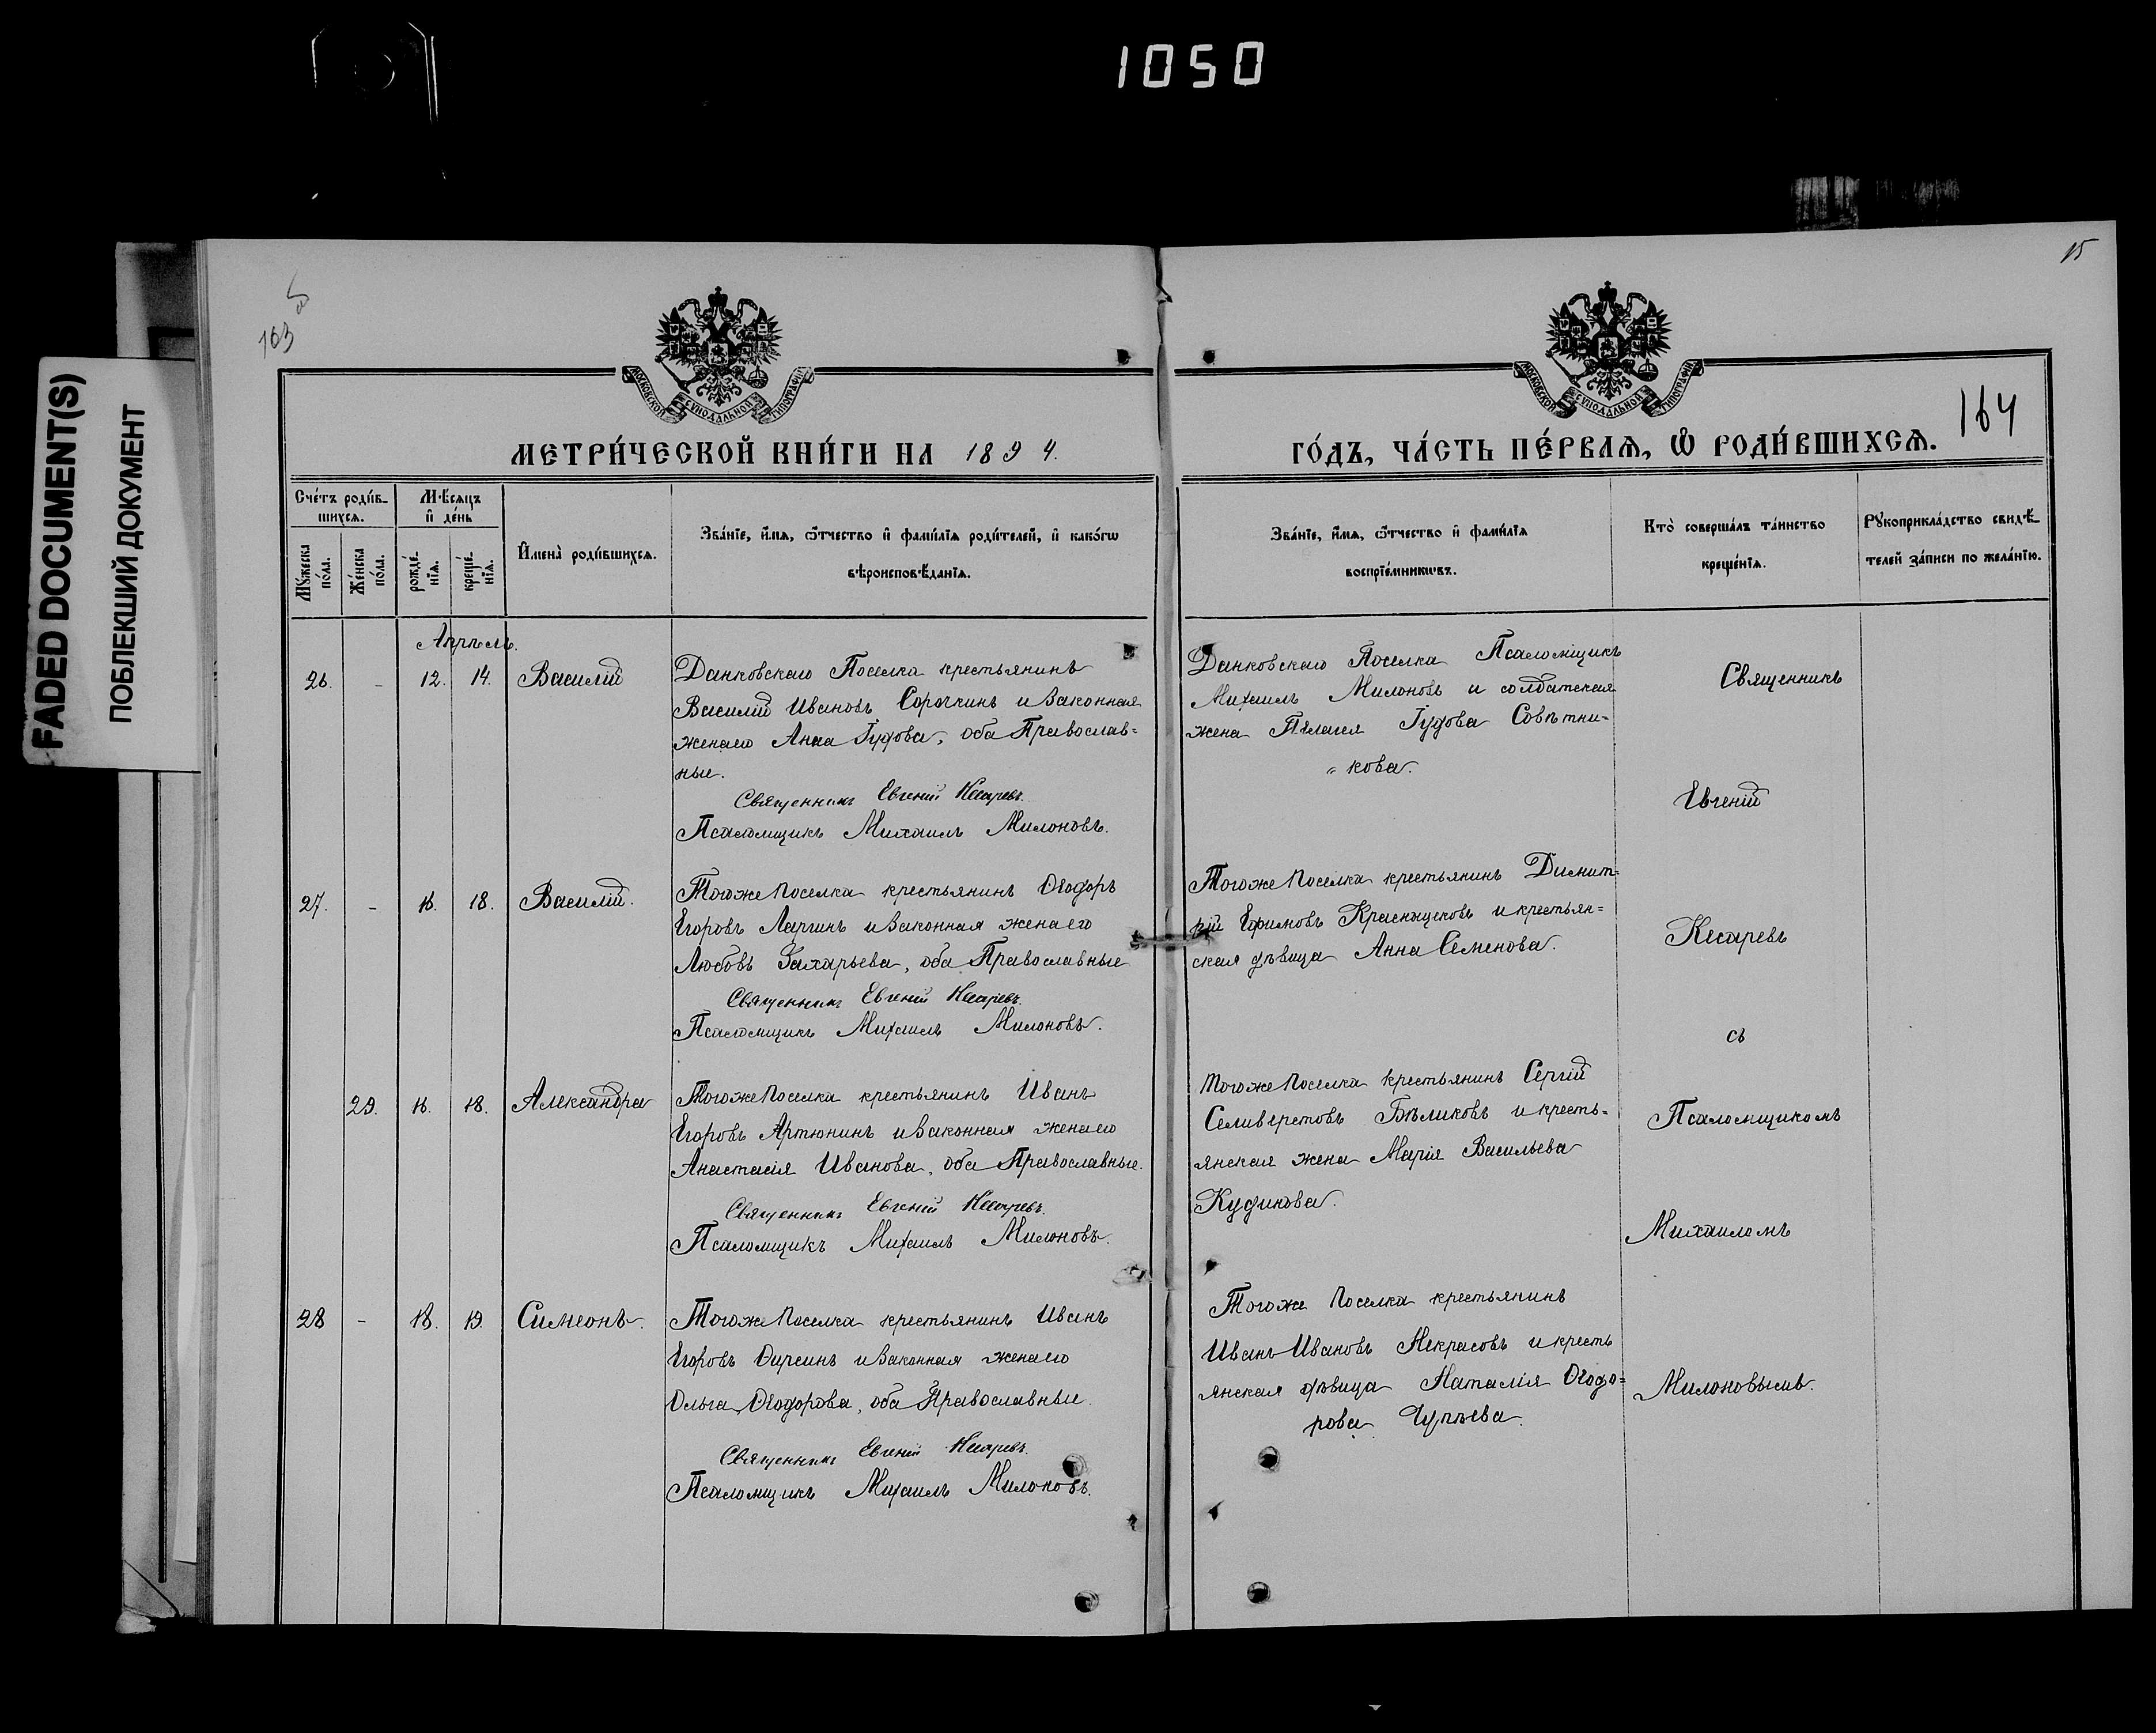 1050
FADED DOCUMENT(S)
ПОБЛЕКШИЙ ДОКУМЕНТ
103 об
15
164
МОСКОВСКОЙ СѴНОДАЛЬНОЙ ТИПОГРАФІИ
МОСКОВСКОЙ СѴНОДАЛЬНОЙ ТИПОГРАФІИ
МЕТРИ́ЧЕСКОЙ КНИ́ГИ НА 1894.
ГО́ДЪ, ЧА́СТЬ ПЕ́РВАЯ, Ѡ РОДИ́ВШИХСѦ.
Сче́тъ роди́в-
шихсѧ.
Мѣ́сѧцъ
и де́нь
Мꙋ́жеска по́ла.
Же́нска по́ла.
рожде́-
нїѧ.
креще́-
нїѧ.
Имена̀ роди́вшихсѧ.
Зва́нїе, и́мѧ, ѻ́тчество и фами́лїѧ роди́телей, и како́гѡ
вѣроисповѣ́данїѧ.
Зва́нїе, и́мѧ, ѻ́тчество и фами́лїѧ
воспрїе́мникѡвъ.
Кто̀ соверша́лъ та́инство
креще́нїѧ.
Рꙋкоприкла́дство свидѣ́-
телей за́писи по жела́нїю.
Апрѣль.
26. - 12. 14. Василій
Данковскаго Поселка крестьянинъ
Василій Ивановъ Сорочкинъ и законная
жена его Анна Гудова, оба Православ=
ные.
Священникъ Евгеній Кесаревъ.
Псаломщикъ Михаилъ Милоновъ.
Данковскаго Поселка Псаломщикъ
Михаилъ Милоновъ и солдатская
жена Пелагея Гудова Совѣтни=
кова.
27. - 16. 18. Василій.
Тогоже Поселка крестьянинъ Ѳеодоръ
Егоровъ Ларинъ и законная жена его
Любовь Захарьева, оба Православные
Священникъ Евгеній Кесаревъ.
Псаломщикъ Михаилъ Милоновъ.
Тогоже Поселка крестьянинъ Димит=
рій Ефимовъ Краснощековъ и крестьян=
ская дѣвица Анна Семенова.
29. 16. 18. Александра
Тогоже Поселка крестьянинъ Иванъ
Егоровъ Артюнинъ и законная жена его
Анастасія Иванова, оба Православные.
Священникъ Евгеній Кесаревъ.
Псаломщикъ Михаилъ Милоновъ.
Тогоже Поселка крестьянинъ Сергій
Селиверстовъ Бѣликовъ и кресть=
янская жена Марія Васильева
Кудинова.
28 - 18. 19. Симеонъ.
Тогоже Поселка крестьянинъ Иванъ
Егоровъ Ѳирсинъ и законная жена его
Ольга Ѳеодорова, оба Православные.
Священникъ Евгеній Кесаревъ.
Псаломщикъ Михаилъ Милоновъ.
Тогоже Поселка крестьянинъ
Иванъ Ивановъ Некрасовъ и кресть
янская дѣвица Наталія Ѳеодо=
рова Чупѣева.
Священникъ
Евгеній
Кесаревъ
съ
Псаломщикомъ
Михаиломъ
Милоновымъ.